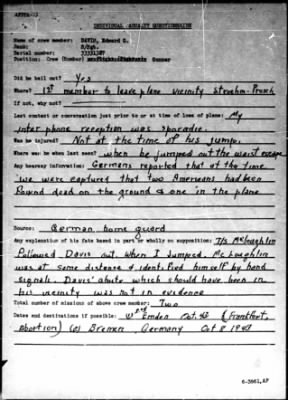 INDIVIDUAL CASUALTY QUESTIONNAIRE
Name of crew member: DAVIS, Edward C.
Rank: S/Sgt.
Serial number: 33331287
Position: Crew (Bomber) Gunner
Did he bail out? Yes
Where? 1st member to leave plane vicinity
If not, why not?
Last contact or conversation just prior to or at time of loss of plane: My
interphone reception was sporadic.
Was he injured? Not at the time of his jump.
Where was he when last seen? when he jumped out the waist escape
Any hearsay information: Germans reported that at the time
we were captured that two Americans had been
found dead on the ground & one in the plane
Source: German home guard
Any explanation of his fate based in part or wholly on supposition: T/S McLaughlin
followed Davis out. when I Jumped. McLaughlin
was at some distance & identified himself by hand
signals. Davis' chute which should have been in
his vicinity was not in evidence
Total number of missions of above crew member: Two
Dates and destinations if possible: Emden Oct. (Frankfort,
abortion) Bremen, Germany Oct 8 1943
6-3861,AF